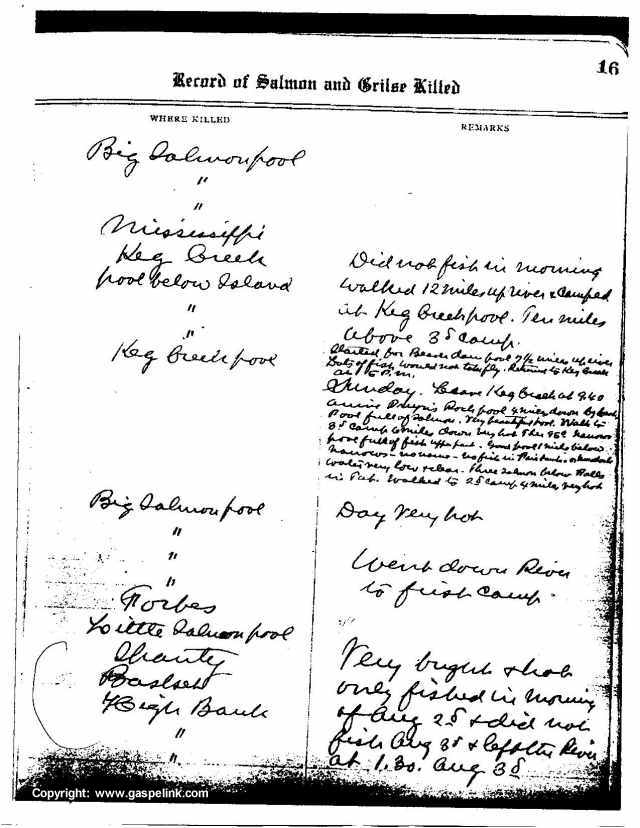 16
Record of Salmon and Grilse Killed
WHERE KILLED
REMARKS
Big Salmon pool
"
"
Mississippi
Keg Creek
pool below Island
"
"
Keg Creek pool
Did not fish in morning
walked 12 miles up river & camped
at Keg Creek pool. Ten miles
above 3d camp.
Started for Beaver dam pool 7½ miles up river
Lots of fish would not take fly. Returned to Keg Creek
at P.M.
Sunday. Leave Keg Creek at 9.40
arrive Rock pool 4 miles down
Pool full of Salmon. Very beautiful pool. Walk to
3d Camp 6 miles down very hot Narrows
pool full of fish
Narrows
water very low & clear. Three Salmon below Falls
in Pab. Walked to 2d camp 4 miles very hot
Big Salmon pool
"
"
"
Forbes
Little Salmon pool
Shanty
Basket
High Bank
"
"
Day very hot
Went down River
to first Camp.
Very bright & hot
only fished in Morning
of Aug 2d & did not
fish Aug 3d & left the River
at 1.30. Aug 3d
Copyright: www.gaspelink.com